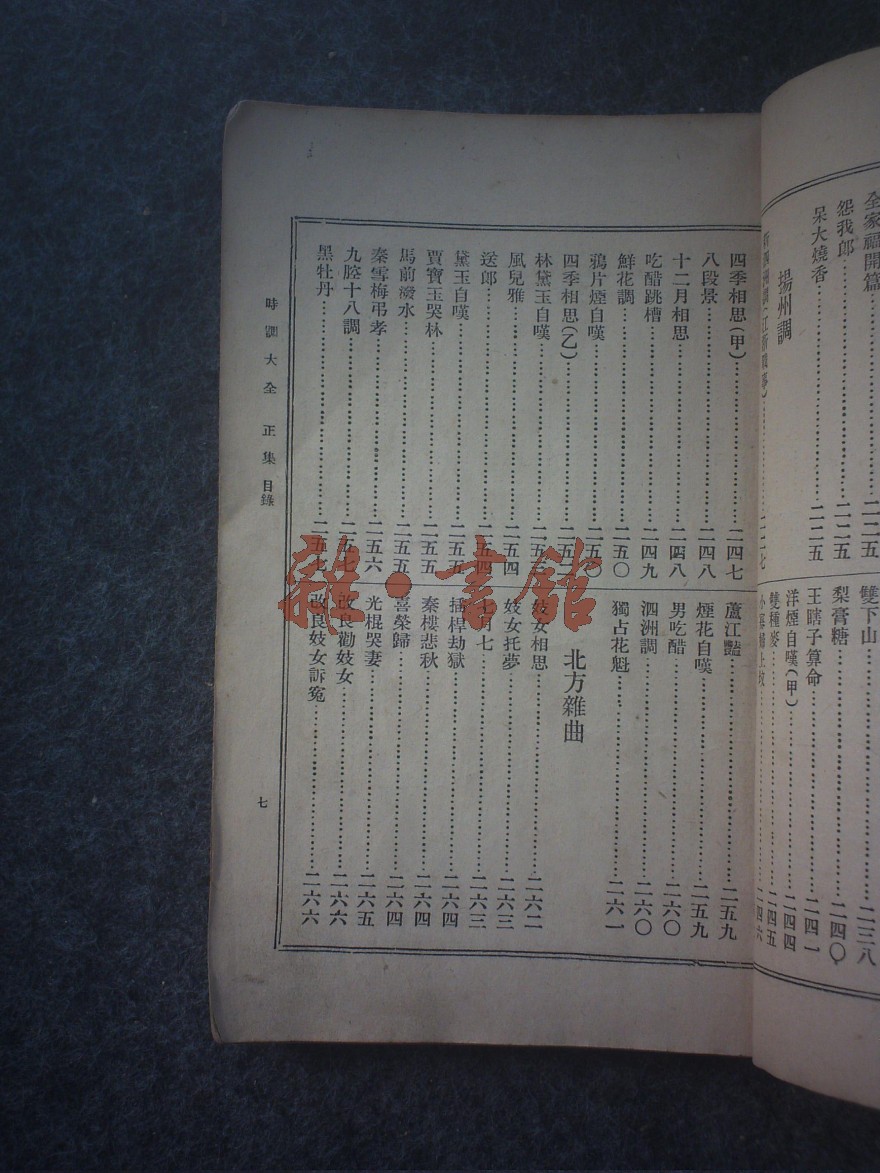 全家福開篇……二二五
怨我郎……二二五
呆大燒香……二二五
揚州調
雙下山……二三八
梨膏糖……二四〇
王瞎子算命……二四一
洋煙自嘆(甲)……二四四
雙種麥……二四五
四季相思(甲)……二四七
八段景……二四八
十二月相思……二四八
吃醋跳槽……二四九
鮮花調……二五〇
鴉片煙自嘆……二五〇
四季相思(乙)……二五二
林黛玉自嘆……二五三
風兒雅……二五四
送郎……二五四
黛玉自嘆……二五五
賈寶玉哭林……二五五
馬前潑水……二五五
秦雪梅弔孝……二五六
九腔十八調……二五七
黑牡丹……二五七
蘆江豔……二五九
煙花自嘆……二五九
男吃醋……二六〇
泗洲調……二六〇
獨占花魁……二六一
北方雜曲
妓女相思……二六二
妓女托夢……二六三
七月七……二六三
插桿劫獄……二六四
秦樓悲秋……二六四
喜榮歸……二六四
光棍哭妻……二六五
改良勸妓女……二六六
改良妓女訴冤……二六六
時調大全 正集 目錄
七
雜·書館